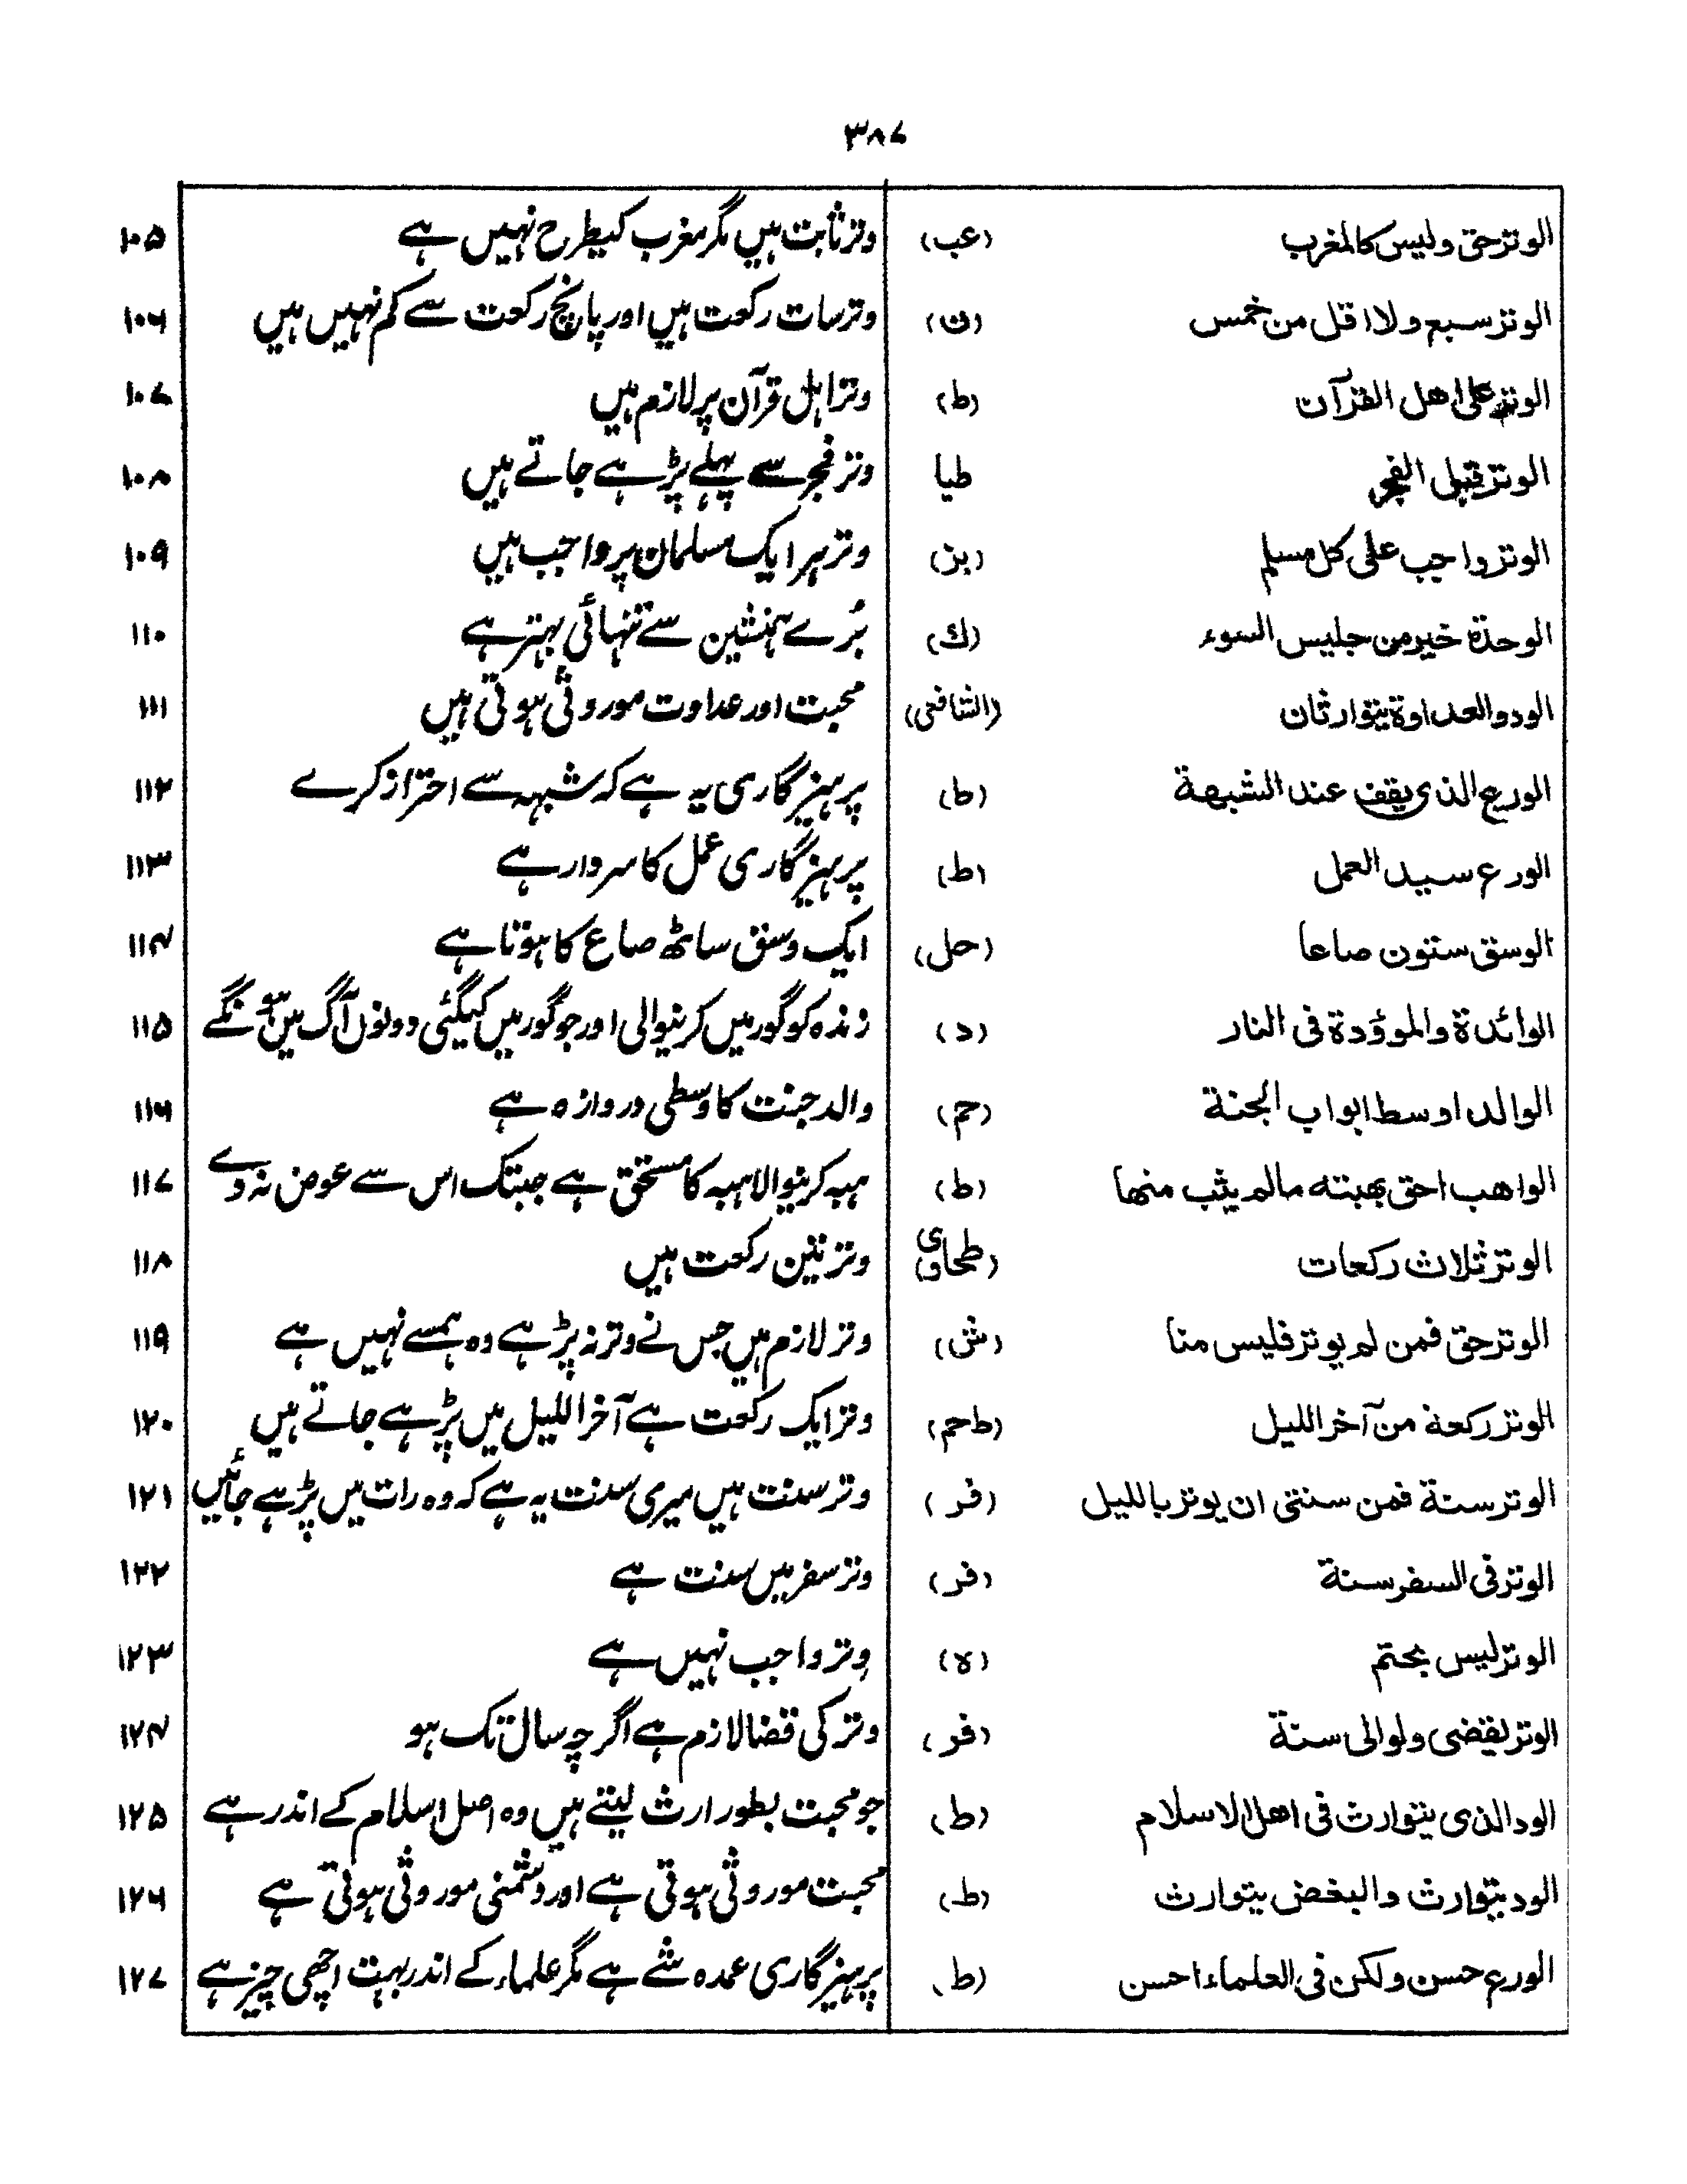 ۳۸۷
الوتر حق وليس كالمغرب (عب) وتر ثابت ہیں مگر مغرب کیطرح نہیں ہے ۱۰۵
الوتر سبع ولا اقل من خمس (ن) وتر سات رکعت ہیں اور پانچ رکعت سے کم نہیں ہیں ۱۰۶
الوتر على اهل القرآن (ط) وتر اہل قرآن پر لازم ہیں ۱۰۷
الوتر قبل الفجر طیا وتر فجر سے پہلے پڑہے جاتے ہیں ۱۰۸
الوتر واجب على كل مسلم (بز) وتر ہر ایک مسلمان پر واجب ہیں ۱۰۹
الوحدة خير من جليس السوء (ك) بُرے ہمنشین سے تنہائی بہتر ہے ۱۱۰
الود والعداوة يتوارثان (الشافعی) محبت اور عداوت موروثی ہوتی ہیں ۱۱۱
الورع الذي يقف عند الشبهة (ط) پرہیزگاری یہ ہے کہ شبہہ سے احتراز کرے ۱۱۲
الورع سيد العمل (ط) پرہیزگاری عمل کا سردار ہے ۱۱۳
الوسق ستون صاعا (حل) ایک وسق ساٹھ صاع کا ہوتا ہے ۱۱۴
الوائدة والموؤدة فى النار (د) زندہ کو گور میں کرنیوالی اور جو گور میں کیگئی دونوں آگ میں ہونگے ۱۱۵
الوالد اوسط ابواب الجنة (حم) والد جنت کا وسطی دروازہ ہے ۱۱۶
الواهب احق بهبته مالم يثب منها (ط) ہبہ کرنیوالا ہبہ کا مستحق ہے جبتک اس سے عوض نہ دے ۱۱۷
الوتر ثلاث ركعات (طحاوی) وتر تین رکعت ہیں ۱۱۸
الوتر حق فمن لم يوتر فليس منا (ش) وتر لازم ہیں جس نے وتر نہ پڑہے وہ ہمسے نہیں ہے ۱۱۹
الوتر ركعة من آخر الليل (ط حم) وتر ایک رکعت ہے آخر اللیل میں پڑہے جاتے ہیں ۱۲۰
الوتر سنة فمن سنتى ان يوتر بالليل (فر) وتر سنت ہیں میری سنت یہ ہے کہ وہ رات میں پڑہے جائیں ۱۲۱
الوتر فى السفر سنة (فر) وتر سفر میں سنت ہے ۱۲۲
الوتر ليس بحتم (ہ) وتر واجب نہیں ہے ۱۲۳
الوتر يقضى ولو الى سنة (فر) وتر کی قضا لازم ہے اگرچہ سال تک ہو ۱۲۴
الود الذى يتوارث فى اهل الاسلام (ط) جو محبت بطور ارث لیتے ہیں وہ اصل اسلام کے اندر ہے ۱۲۵
الود يتوارث والبغض يتوارث (ط) محبت موروثی ہوتی ہے اور دشمنی موروثی ہوتی ہے ۱۲۶
الورع حسن ولكن فى العلماء احسن (ط) پرہیزگاری عمدہ شے ہے مگر علماء کے اندر بہت اچھی چیز ہے ۱۲۷